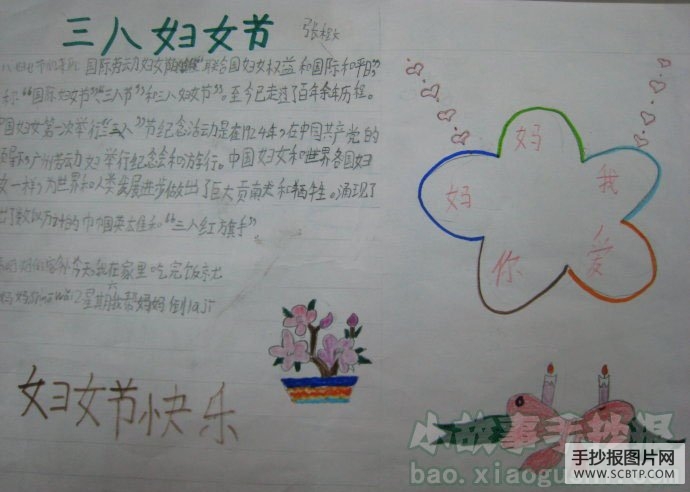 三八妇女节
国际劳动妇女节 联合国妇女权益和国际和平日”
称“国际妇女节”“三八节”和三八妇女节”。至今已走过了百年余年历程。
国妇女第一次举行“三八”节纪念活动是在1924年，在中国共产党的
领导 广州劳动妇 举行纪念会和 行。中国妇女和世界各国妇
女一样，为世界和人类发展进步做出了巨大贡献 和牺牲。涌现了
出了数以万计的巾帼英雄和“三八红旗手”
今天我在家里吃完饭
妈妈 星期 我帮妈妈倒
妇女节快乐
妈
我
爱
你
妈
小故事手抄报
bao.xiaogu
手抄报图片网
WWW.SCBTP.COM